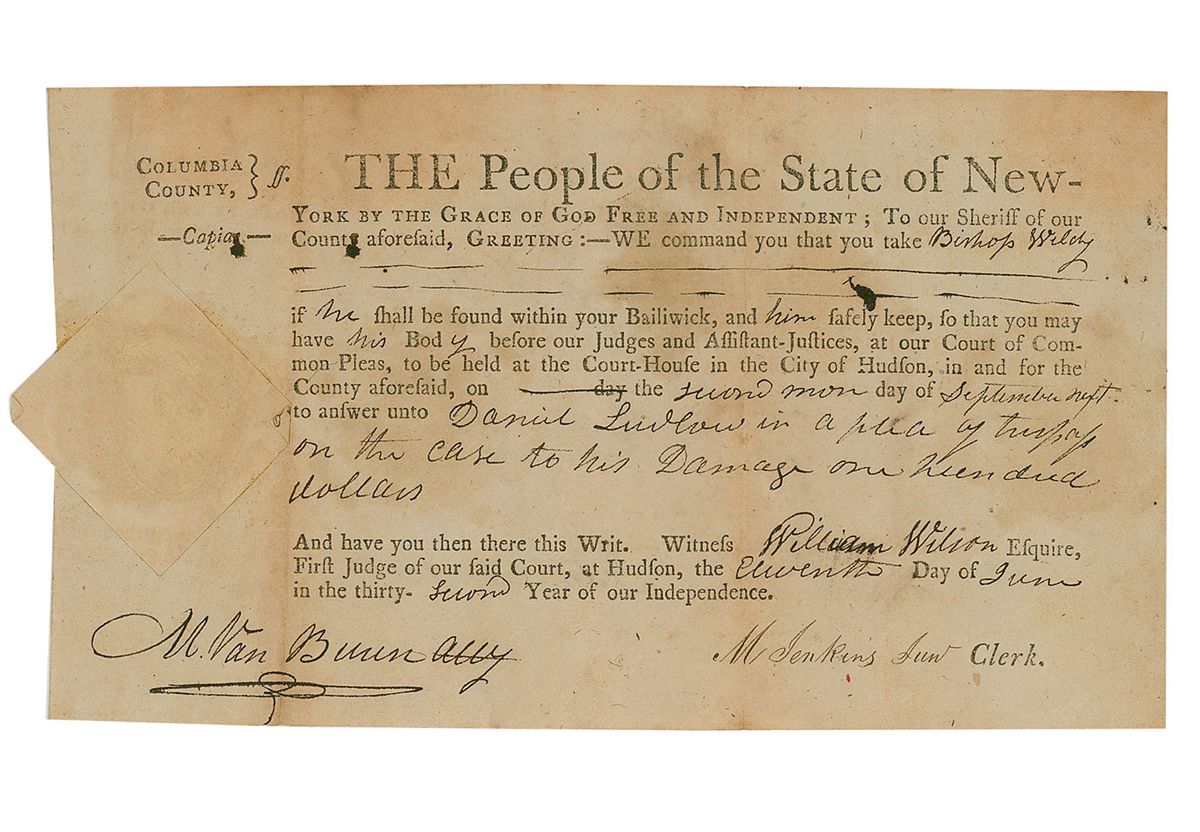 COLUMBIA COUNTY, } ſſ.
—Capias—
THE People of the State of New-
YORK BY THE GRACE OF GOD FREE AND INDEPENDENT; To our Sheriff of our
County aforeſaid, GREETING:—WE command you that you take Bishop Wildy
if he ſhall be found within your Bailiwick, and him ſafely keep, ſo that you may
have his Body before our Judges and Aſſiſtant-Juſtices, at our Court of Com-
mon Pleas, to be held at the Court-Houſe in the City of Hudſon, in and for the
County aforeſaid, on day the second mon day of September next.
to anſwer unto Daniel Ludlow in a plea of trespass
on the case to his Damage one hundred
dollars
And have you then there this Writ. Witneſs William Wilson Eſquire,
Firſt Judge of our ſaid Court, at Hudſon, the Eleventh Day of June
in the thirty- second Year of our Independence.
M. Van Buren atty
M Jenkins Jun Clerk.